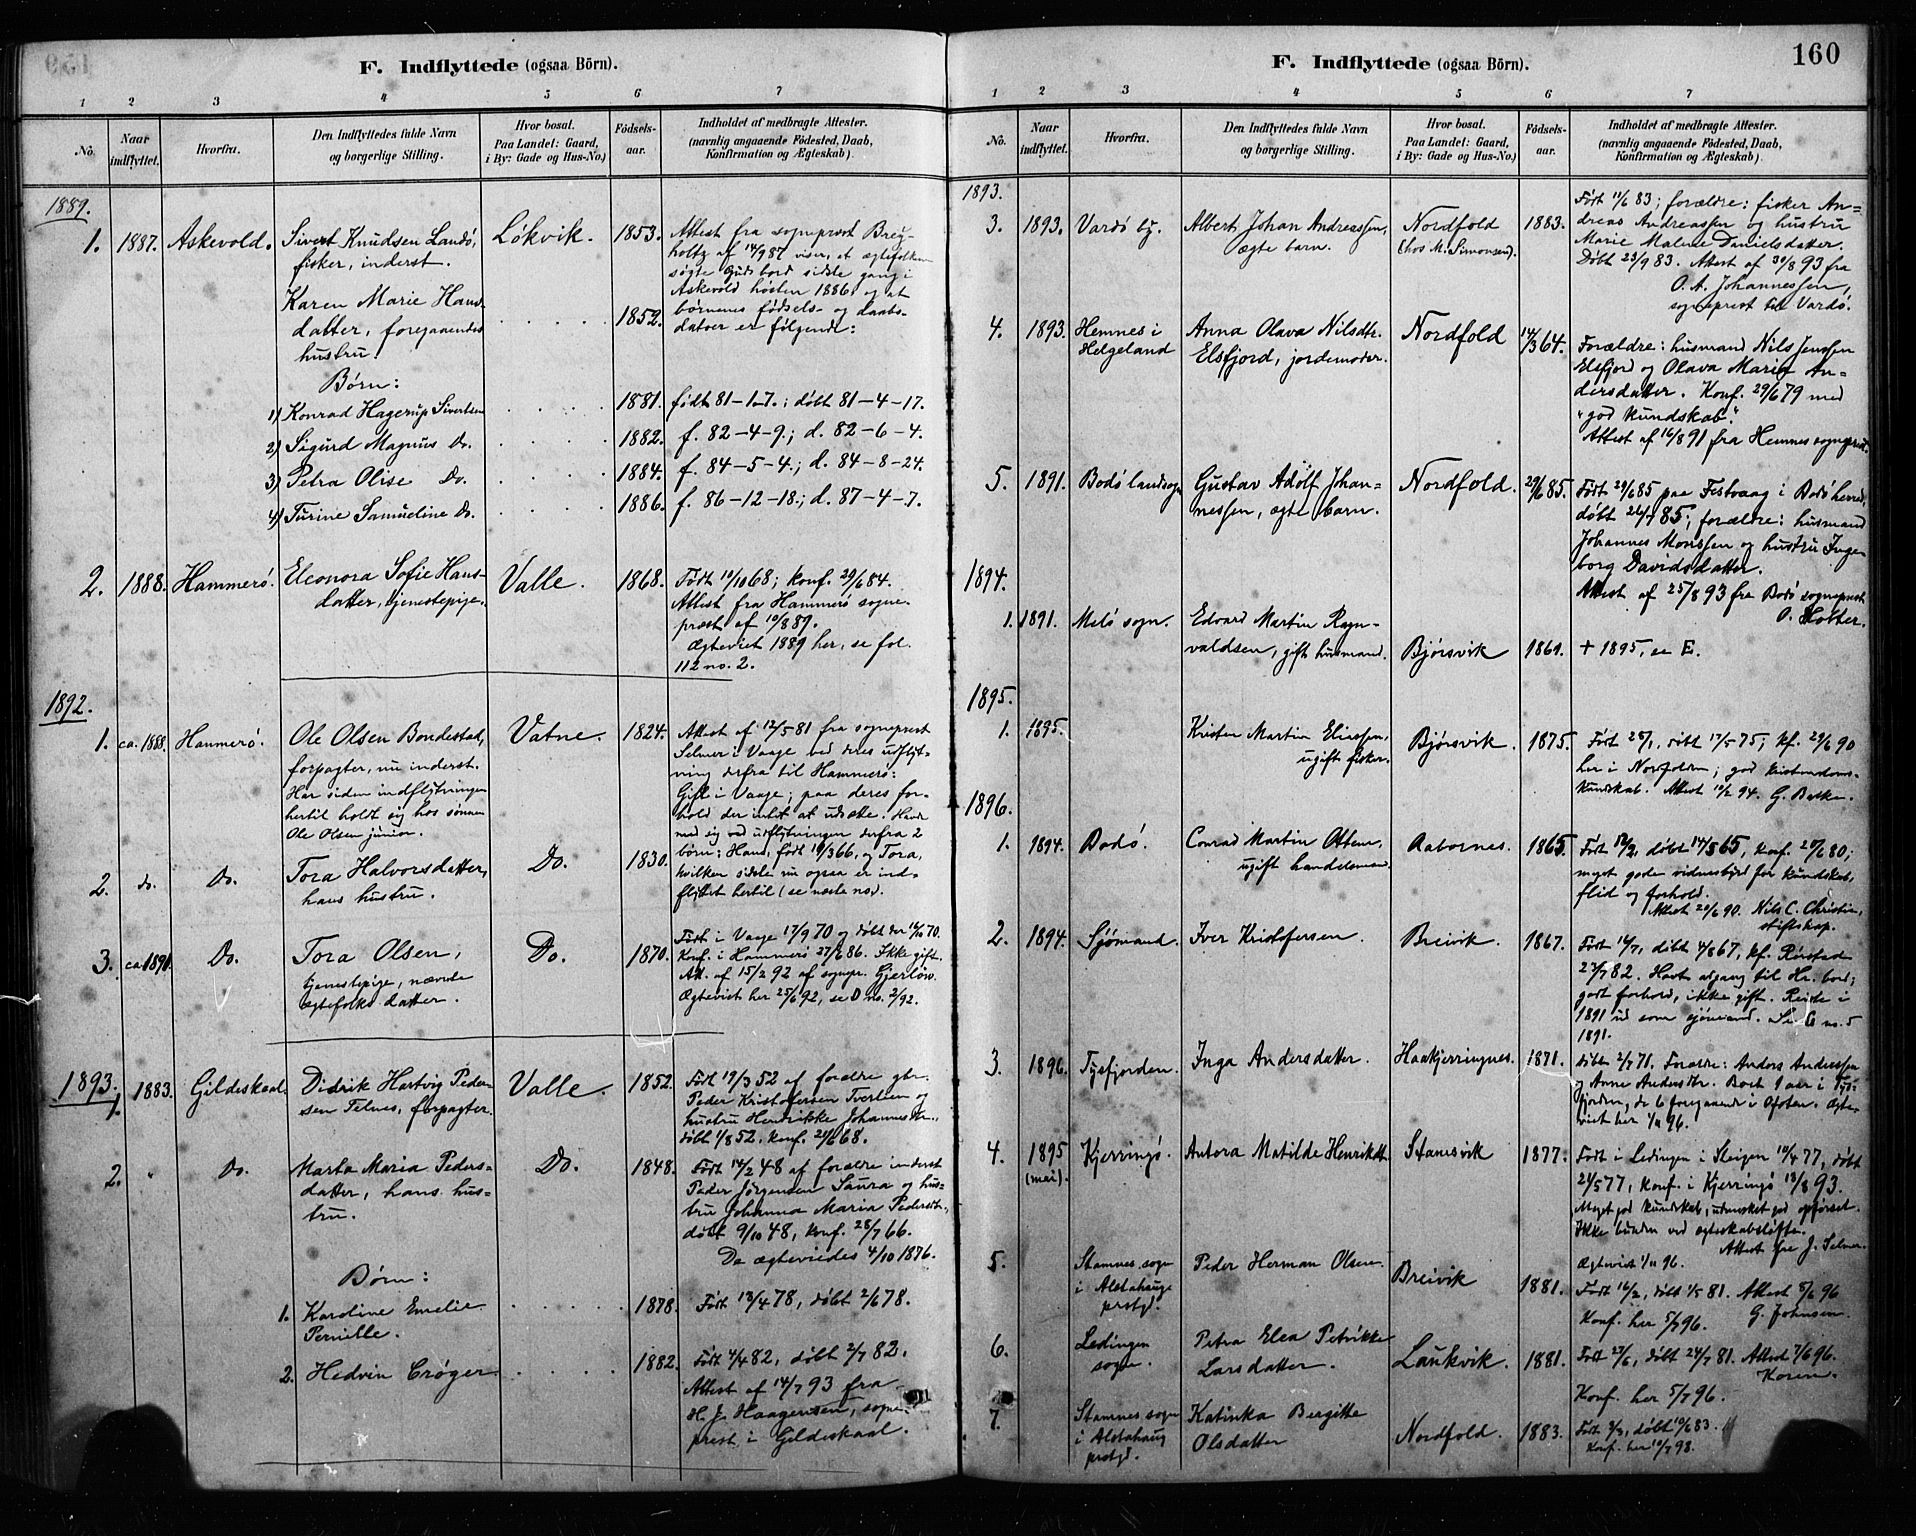 F. Indflyttede (ogsaa Börn).
1 2 3 4 5 6 7
No.
Naar indflyttet.
Hvorfra.
Den Indflyttedes fulde Navn og borgerlige Stilling.
Hvor bosat. Paa Landet: Gaard, i By: Gade og Hus-No.)
Födsels-aar.
Indholdet af medbragte Attester. (navnlig angaaende Födested, Daab, Confirmation og Ægteskab)
1889.
1. 1887. Askevold. Sivert Knudsen Landö, Lökvik. 1853. Attest fra sogneprest Brey-
fisker, inderst. holtz af 14/9 87 viser, at ægtefolkene
søgte Guds bord sidste gang i
Askevold høsten 1886 og at
Karen Marie Hans- børnenes fødsels- og daabs-
datter, foregaaendes 1852. datoer er følgende:
hustru.
Børn:
1) Konrad Hagerup Sivertsen 1881. født 81-1-7.; døbt 81-4-17.
2) Sigurd Magnus Do. 1882. f. 82-4-9.; d. 82-6-4.
3) Petra Olise Do. 1884. f. 84-5-4.; d. 84-8-24.
4) Turine Samueline Do. 1886. f. 86-12-18.; d. 87-4-7.
2. 1888. Hammerö. Eleonora Sofie Hans- Valle. 1868. Født 10/10 68; konf. 29/6 84.
datter, tjenestepige. Attest fra Hammerö sogne-
præst af 10/8 89.
Ægteviet 1889 her, se fol.
112 no. 2.
1892.
1. ca. 1888. Hammerö. Ole Olsen Bondestad, Vatne. 1824. Attest af 12/5 81 fra sogneprest
forpagter, nu inderst. Selmer i Vaage ved deres udflyt-
ning derfra til Hammerö:
Har siden indflytningen Gift i Vaage; paa deres for-
hertil holdt sig hos sönnen hold der intet at udsætte. Havde
Ole Olsen junior. med sig ved udflytningen derfra 2
2. do. Do. Tora Halvorsdatter, Do. 1830. børn: Hans, født 19/3 66, og Tora,
hans hustru. hvilken sidste nu ogsaa er ind-
flyttet hertil (se næste no.).
3. ca. 1890. Do. Tora Olsen, Do. 1870. Født i Vaage 17/9 70 og døbt der 16/10 70.
tjenestepige, nævnte Konf. i Hammerö 27/6 86. Ikke gift.
ægtefolks datter. Att. af 15/2 92 af sognepr. Gjerlöw.
Ægteviet her 25/6 92, se D no. 2/92.
1893.
1. 1883. Gildeskaal. Didrik Hartvig Peder- Valle. 1852. Født 19/3 52 af forældre gbr.
sen Telnes, forpagter. Peder Kristofersen Tverleen og
hustru Hendrikke Johannesdtr.,
døbt 1/8 52. Konf. 21/6 68.
2. " Do. Marta Maria Peders- Do. 1848. Født 14/2 48 af forældre inderst
datter, hans hus- Peder Jörgensen Saura og hus-
tru. tru Johanna Maria Pedersdtr.,
døbt 9/10 48, konf. 28/7 66.
De ægteviedes 4/10 1876.
Børn:
1. Karoline Emelie 1878. Født 13/4 78, døbt 2/6 78.
Pernille.
2. Hedvin Crøger 1882. Født 4/4 82, døbt 2/7 82.
Attest af 14/7 93 fra
H. J. Haagensen, sogne-
prest i Gildeskaal.
160
F. Indflyttede (ogsaa Börn).
1 2 3 4 5 6 7
No.
Naar indflyttet.
Hvorfra.
Den Indflyttedes fulde Navn og borgerlige Stilling.
Hvor bosat. Paa Landet: Gaard, i By: Gade og Hus-No.)
Födsels-aar.
Indholdet af medbragte Attester. (navnlig angaaende Födested, Daab, Confirmation og Ægteskab)
1893.
3. 1893. Vardö by. Albert Johan Andreassen, Nordfold 1883. Født 11/6 83; forældre: fisker An-
ægte barn. (hos M. Simonsen). dreas Andreassen og hustru
Marie Malene Danielsdatter.
Döbt 23/9 83. Attest af 30/8 93 fra
O. A. Johannessen,
sogneprest til Vardö.
4. 1893. Hemnes i Anna Olava Nilsdtr. Nordfold 14/3 64. Forældre: husmand Nils Jenssen
Helgeland Elsfjord, jordemoder. Elsfjord og Olava Maria An-
dersdatter. Konf. 29/6 79 med
"god kundskab."
Attest af 16/8 91 fra Hemnes sogneprest.
5. 1891. Bodö landsogn Gustav Adolf Johan- Nordfold. 29/6 85. Født 29/6 85 paa Festvaag i Bodö herred,
nessen, ægte barn. døbt 26/7 85; forældre: husmand
Johannes Monssen og hustru Inge-
borg Davidsdatter.
Attest af 25/8 93 fra Bodö sogneprest
O. Holter.
1894.
1. 1891. Melö sogn. Edvard Martin Ragn-
valdsen, gift husmand. Bjørsvik 1861. + 1895, se E.
1895.
1. 1895. Kristen Martin Eliassen, Bjørsvik. 1875. Født 25/1, döbt 17/5 75; kf. 29/6 90
ugift fisker. her i Norfolden; god kristendoms-
kundskab. Attest 10/2 94. G. Bakke.
1896.
1. 1894. Bodö. Conrad Martin Ottem, Aabornes. 1865. Født 12/2, døbt 14/5 65, konf. 20/6 80;
ugift handelsmand. meget gode vidnesbyrd for kundskab,
flid og forhold.
Attest 20/6 90. Nils C. Christie, stiftskap.
2. 1894. Sjømand. Iver Kristofersen. Breivik. 1867. Født 16/7, döbt 4/8 67, kf. Rørstad
23/7 82. Havt adgang til Hr. bord;
godt forhold, ikke gift. Reiste i
1891 ud som sjömand. Se G no. 5
1891.
3. 1896. Tysfjorden. Inga Andersdatter. Haakjerringnes. 1871. Døbt 2/7 71. Forældre: Anders Anderssen
og Anne Andersdtr. Boet 1 aar i Tys-
fjorden, de 6 foregaaende i Ofoten. Ægte-
viet her 1/11 96.
4. 1895 Kjerringö. Antora Matilde Henriksdtr. Stavsvik 1877. Født i Ledingen i Steigen 10/4 77, döbt
(mai). 21/5 77, konf. i Kjerringö 13/8 93.
Meget god kundskab, udmerket god opførsel.
Ikke bunden ved ægteskabsløfte.
Attest fra J. Selmer.
Ægteviet 1/11 96.
5. Stamnes sogn Peder Herman Olsen. Breivik 1881. Født 16/2, døbt 1/5 81. Attest 8/6 96
i Alstahaug G. Johnsen.
prstgd. Konf. her 5/7 96.
6. Lødingen Petra Elea Petrikke Laukvik. 1881. Født 27/6, døbt 24/7 81. Attest 7/6 96.
sogn. Larsdatter. Koren.
Konf. her 5/7 96.
7. Stamnes sogn Katinka Bergitte
i Alstahaug Olsdatter Nordfold. 1883. Født 3/3, døbt 10/6 83.
prstgd. Konf. her 10/7 98.